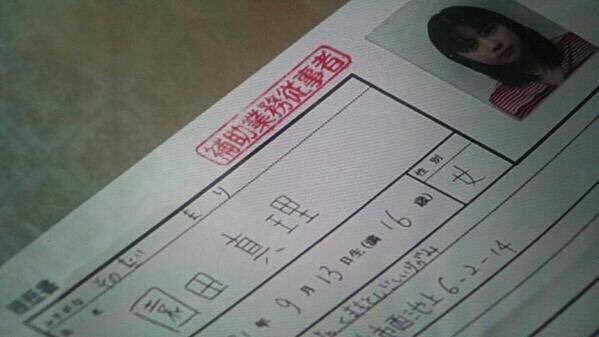 補助業務従事者
履歴書
そのだ まり
園田 真理
性別
女
年 9 月 13 日生 (満 16 歳)
市西池上 6-2-14